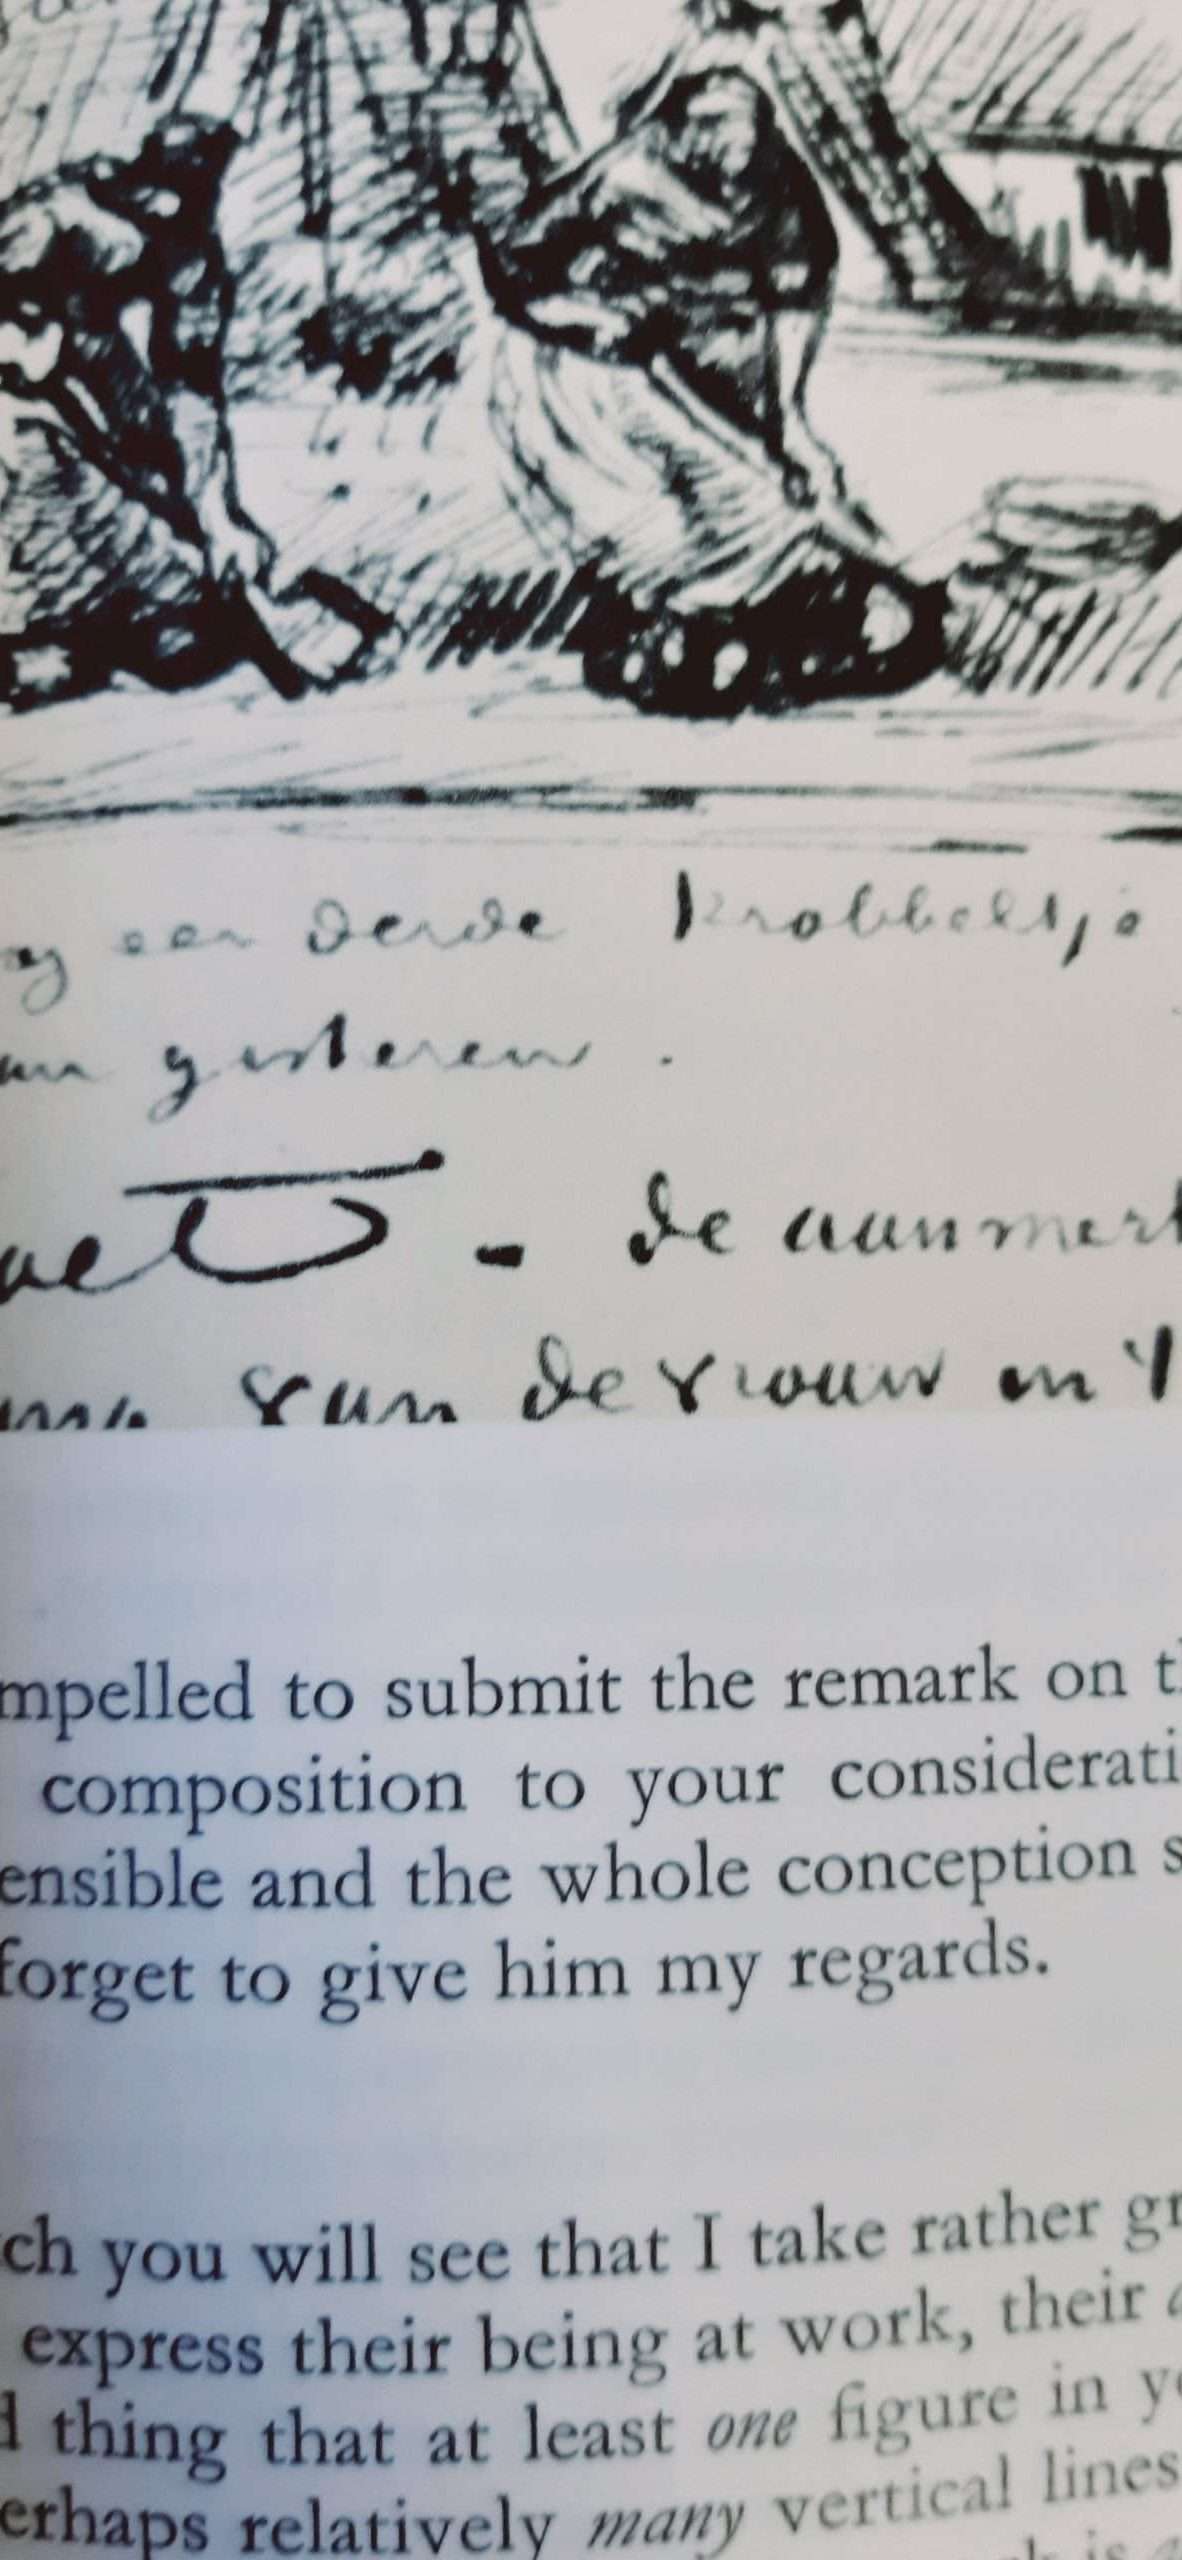 een derde krabbeltje
van gisteren.
- de aanmerk
van de vrouw in 't
mpelled to submit the remark on t
composition to your considerati
ensible and the whole conception s
forget to give him my regards.
ch you will see that I take rather gr
express their being at work, their a
d thing that at least one figure in yo
erhaps relatively many vertical lines